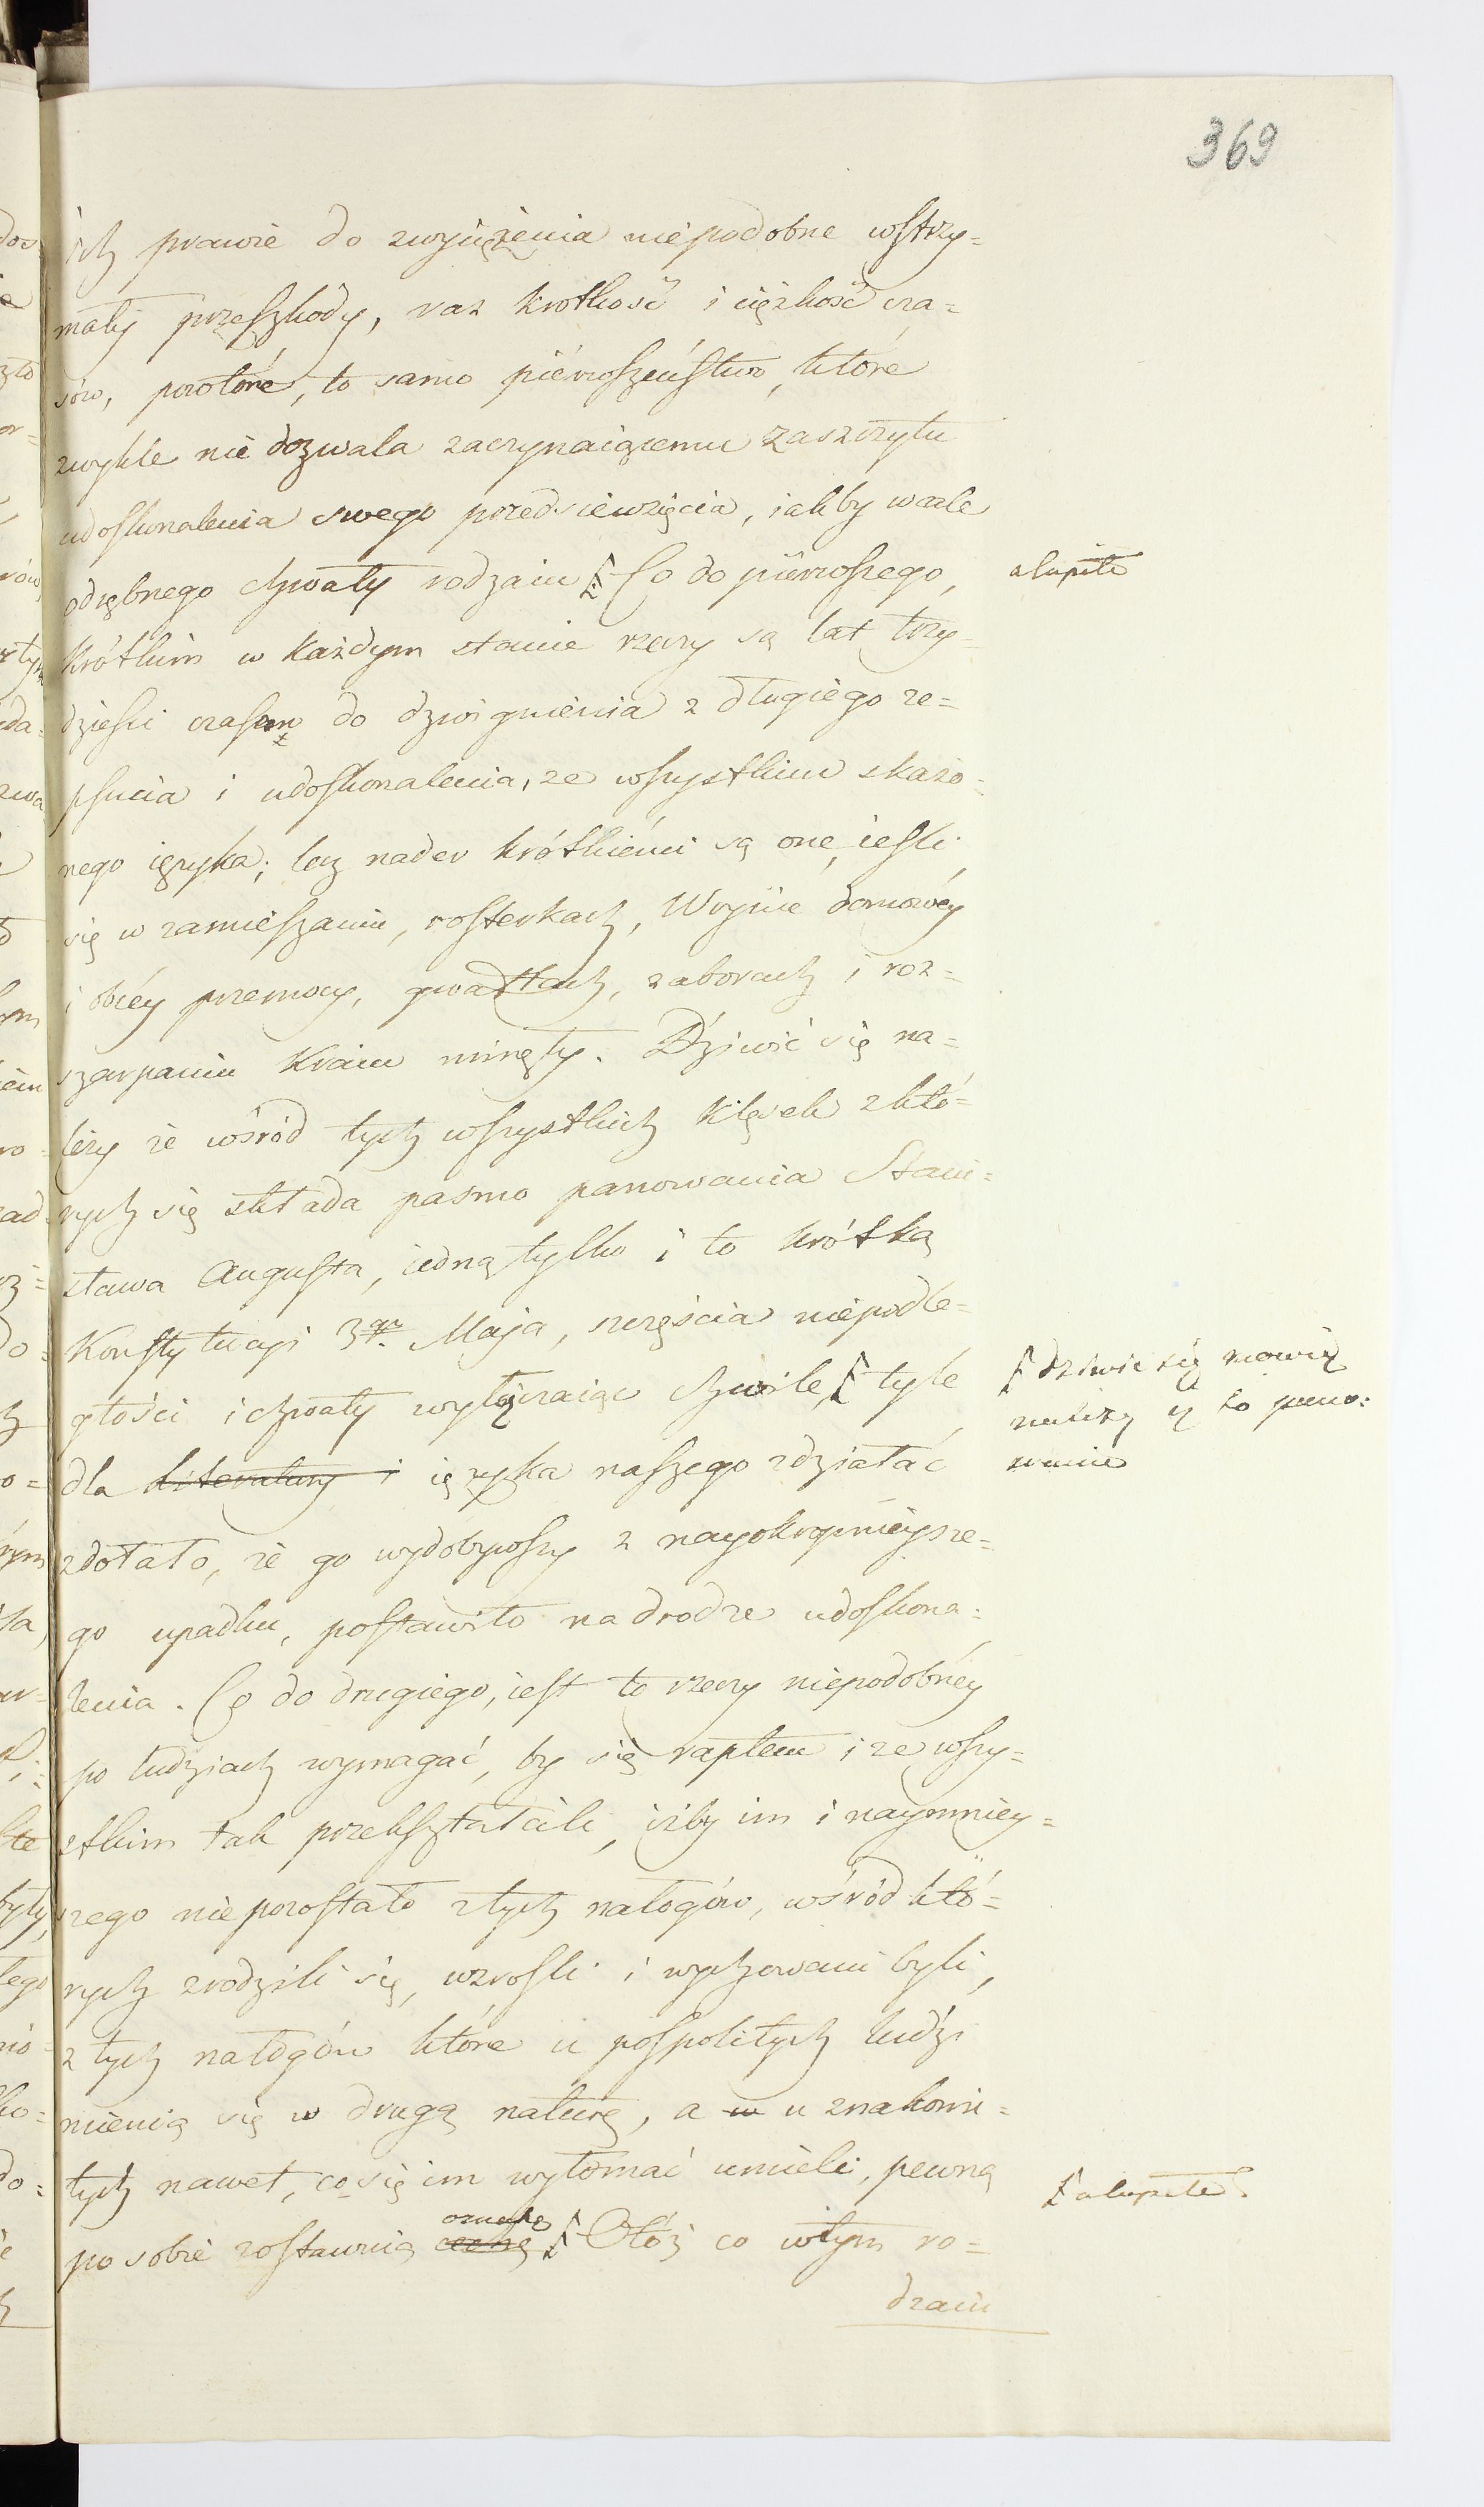 369
ich prawie do zwyciężenia niepodobne wstrzy=
mały przeszkody, raz krotkość i ciężkość cza=
sów, powtóre, to samo piérwszeństwo, które
zwykle nie dozwala zaczynaiącemu zaszczytu
udoskonalenia swego przedsiewzięcia, iakby wcale
odrębnego chwały rodzaiu Co do piérwszego,
a lapite
krótkim w każdym stanie rzeczy są lat trzy=
dzieści czasem do dzwignienia z długiego ze=
psucia i udoskonalenia, ze wszystkim skażo=
nego ięzyka; lecz nader krótkiémi są one, ieśli
się w zamieszaniu, rosterkach, Woynie domowéy
i obcéy przemocy, gwałtach, zaborach i roz=
szarpaniu Kraiu minęły. Dziwić się na=
leży że wśród tych wszystkich klęsek z któ=
rych się składa pasmo panowania Stani=
sława Augusta, iedną tylko i to krótką
Konstytucyi 3go Maja, szczęścia niepodle=
głości i chwały wyłączaiąc chwile, tyle
dziwić się mowię
należy iż to pano=
wanie
dla literatury i ięzyka naszego zdziałać
zdołało, że go wydobywszy z nayokropnieysze=
go upadku, postawiło na drodze udoskona=
lenia. Co do drugiego, iest to rzeczy niepodobnéy
po ludziach wymagać, by się raptem i ze wszy=
stkim tak przekształcili, iżby im i naymniey=
szego nie pozostało z tych nałogów, wśród któ=
rych zrodzili się, wzrośli i wychowani byli,
z tych nałogów które u pospolitych ludzi
mienią się w drugą naturę, a w u znakomi=
tych nawet, co się im wyłomać umieli, pewną
po sobie zostawuią cechę Otóż co w tym ro=
oznakę
a lapite
dzaiu